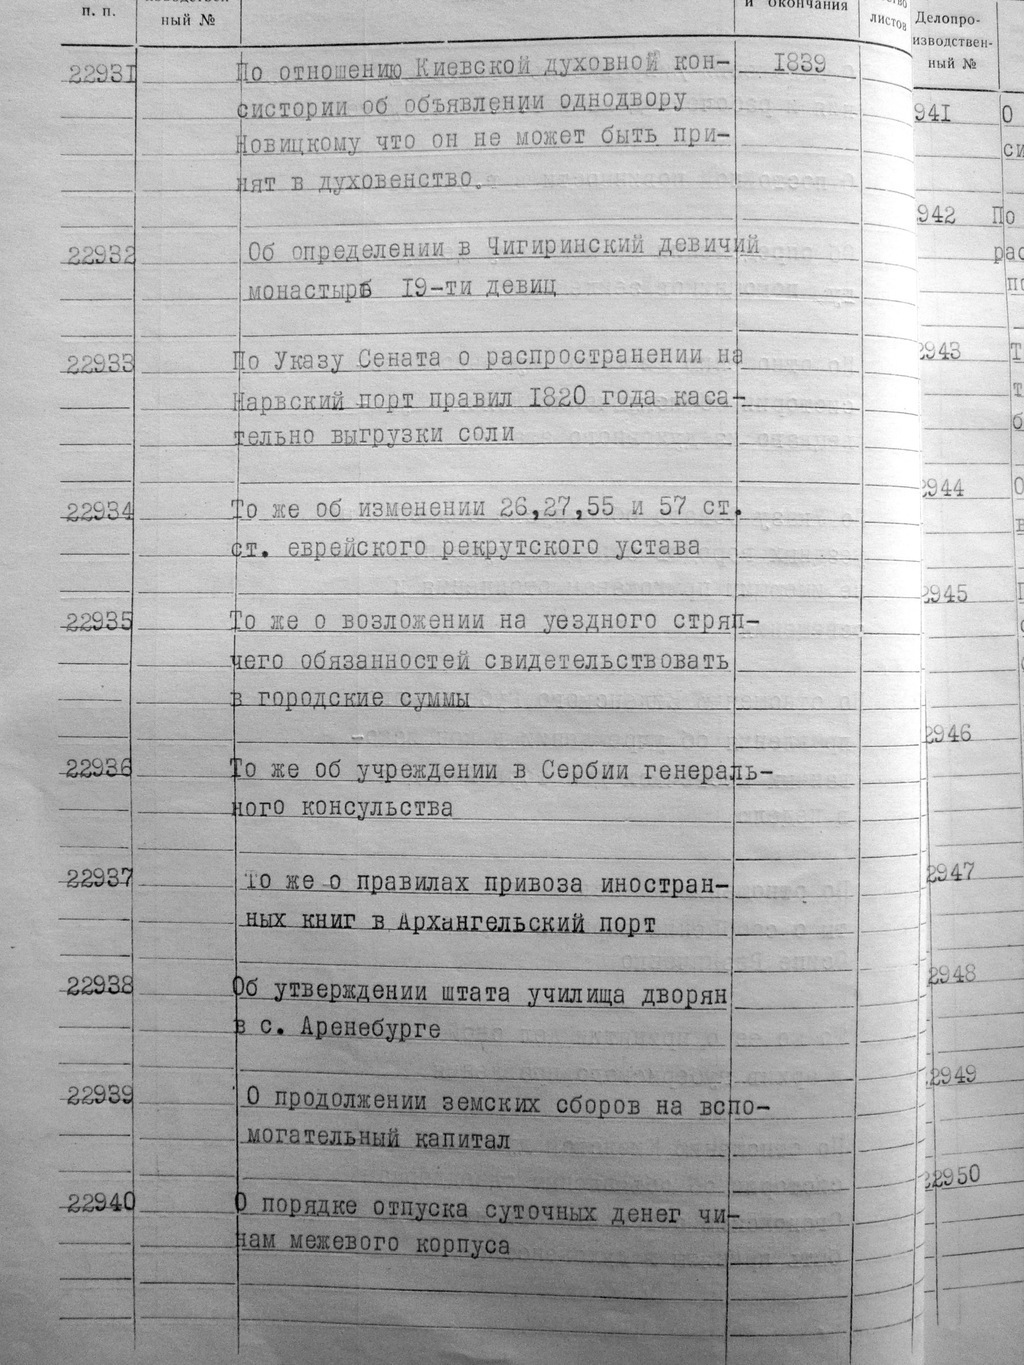 п. п.
ный №
и окончания
листов
Делопро-
изводствен-
ный №
22931 По отношению Киевской духовной кон- 1839
систории об объявлении однодвору
Новицкому что он не может быть при-
нят в духовенство.
22932 Об определении в Чигиринский девичий
монастырь 19-ти девиц
22933 По Указу Сената о распространении на
Нарвский порт правил 1820 года каса-
тельно выгрузки соли
22934 То же об изменении 26,27,55 и 57 ст.
ст. еврейского рекрутского устава
22935 То же о возложении на уездного стряп-
чего обязанностей свидетельствовать
в городские суммы
22936 То же об учреждении в Сербии генераль-
ного консульства
22937 То же о правилах привоза иностран-
ных книг в Архангельский порт
22938 Об утверждении штата училища дворян
в с. Аренебурге
22939 О продолжении земских сборов на вспо-
могательный капитал
22940 О порядке отпуска суточных денег чи-
нам межевого корпуса
941 О
си
942 По
рас
по
2943
2944
2945
2946
2947
2948
22949
22950